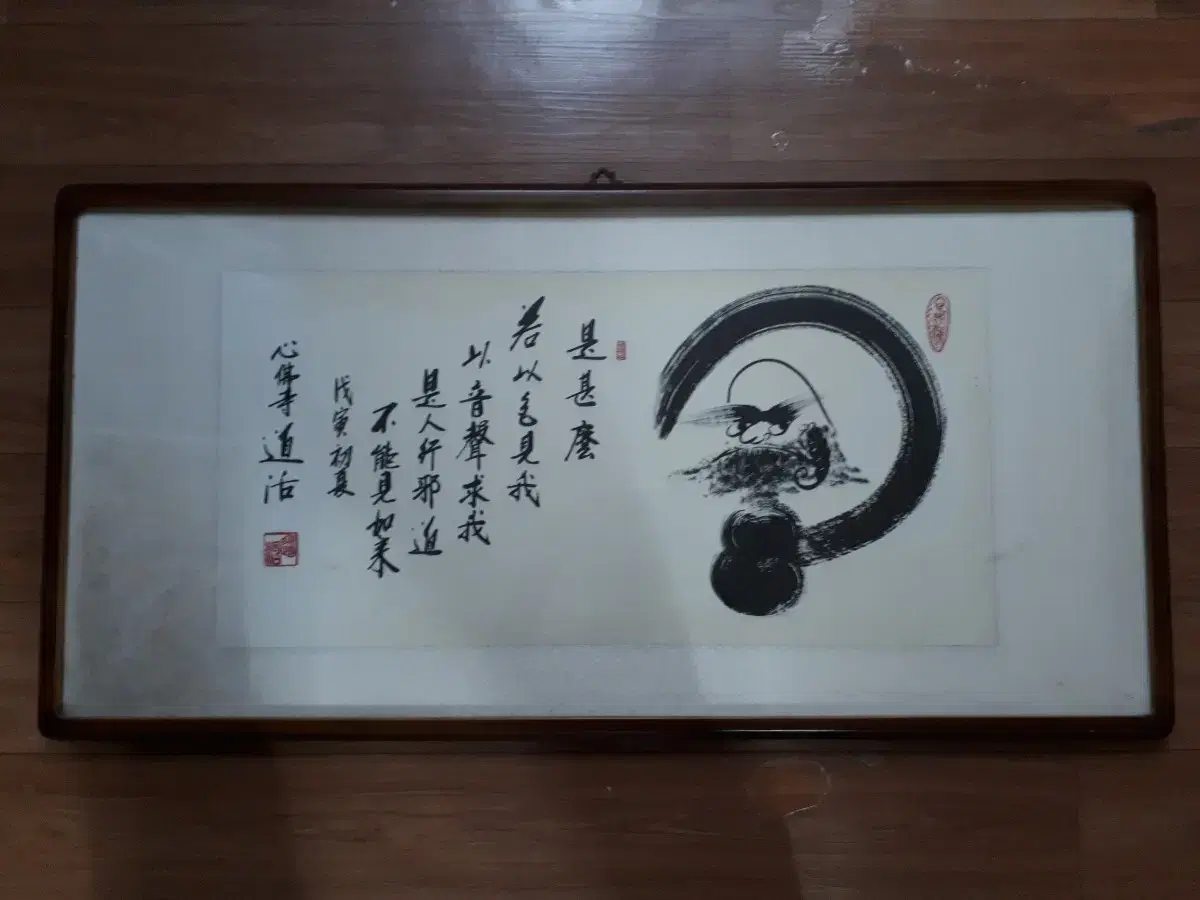 是甚麼
若以色見我
以音聲求我
是人行邪道
不能見如來
戊寅初夏
心佛寺 道活